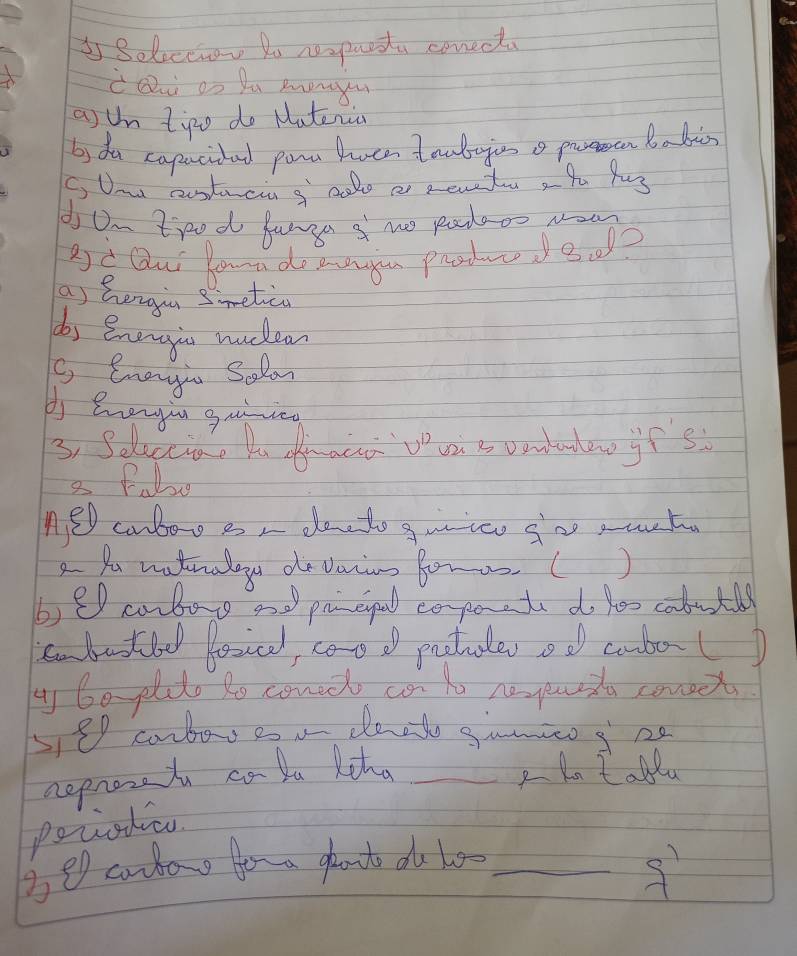 1) Seleccione la respuesta correcta
¿Qué es la energia
a) Un tipo de Materia
b) La capacidad para hacer trabajos o provocar Cambios
c) Una sustancia q' solo se encuentra en la luz
d) Un tipo de fuerza q' no podemos usar
2) ¿Qué forma de energia produce el Sol?
a) Energia Sinetica
b) Energia nuclear
c) Energia Solar
d) Energia quimica
3, Seleccione la afirmación "V" si es verdadero y "F" Si
es Falso
A) El carbono es un elemento quimico q' se encuentra
en la naturaleza de varias formas ( )
b) El carbono es el principal componente de los
combustibel fosicel, como el pretroleo o el carbon ( )
4) Complete lo correcto con la respuesta correcta.
1) El carbono es un elemento quimico q' se
representa con la letra ____ en la tabla
periodica.
2) El carbono forma parte de los ____ q'